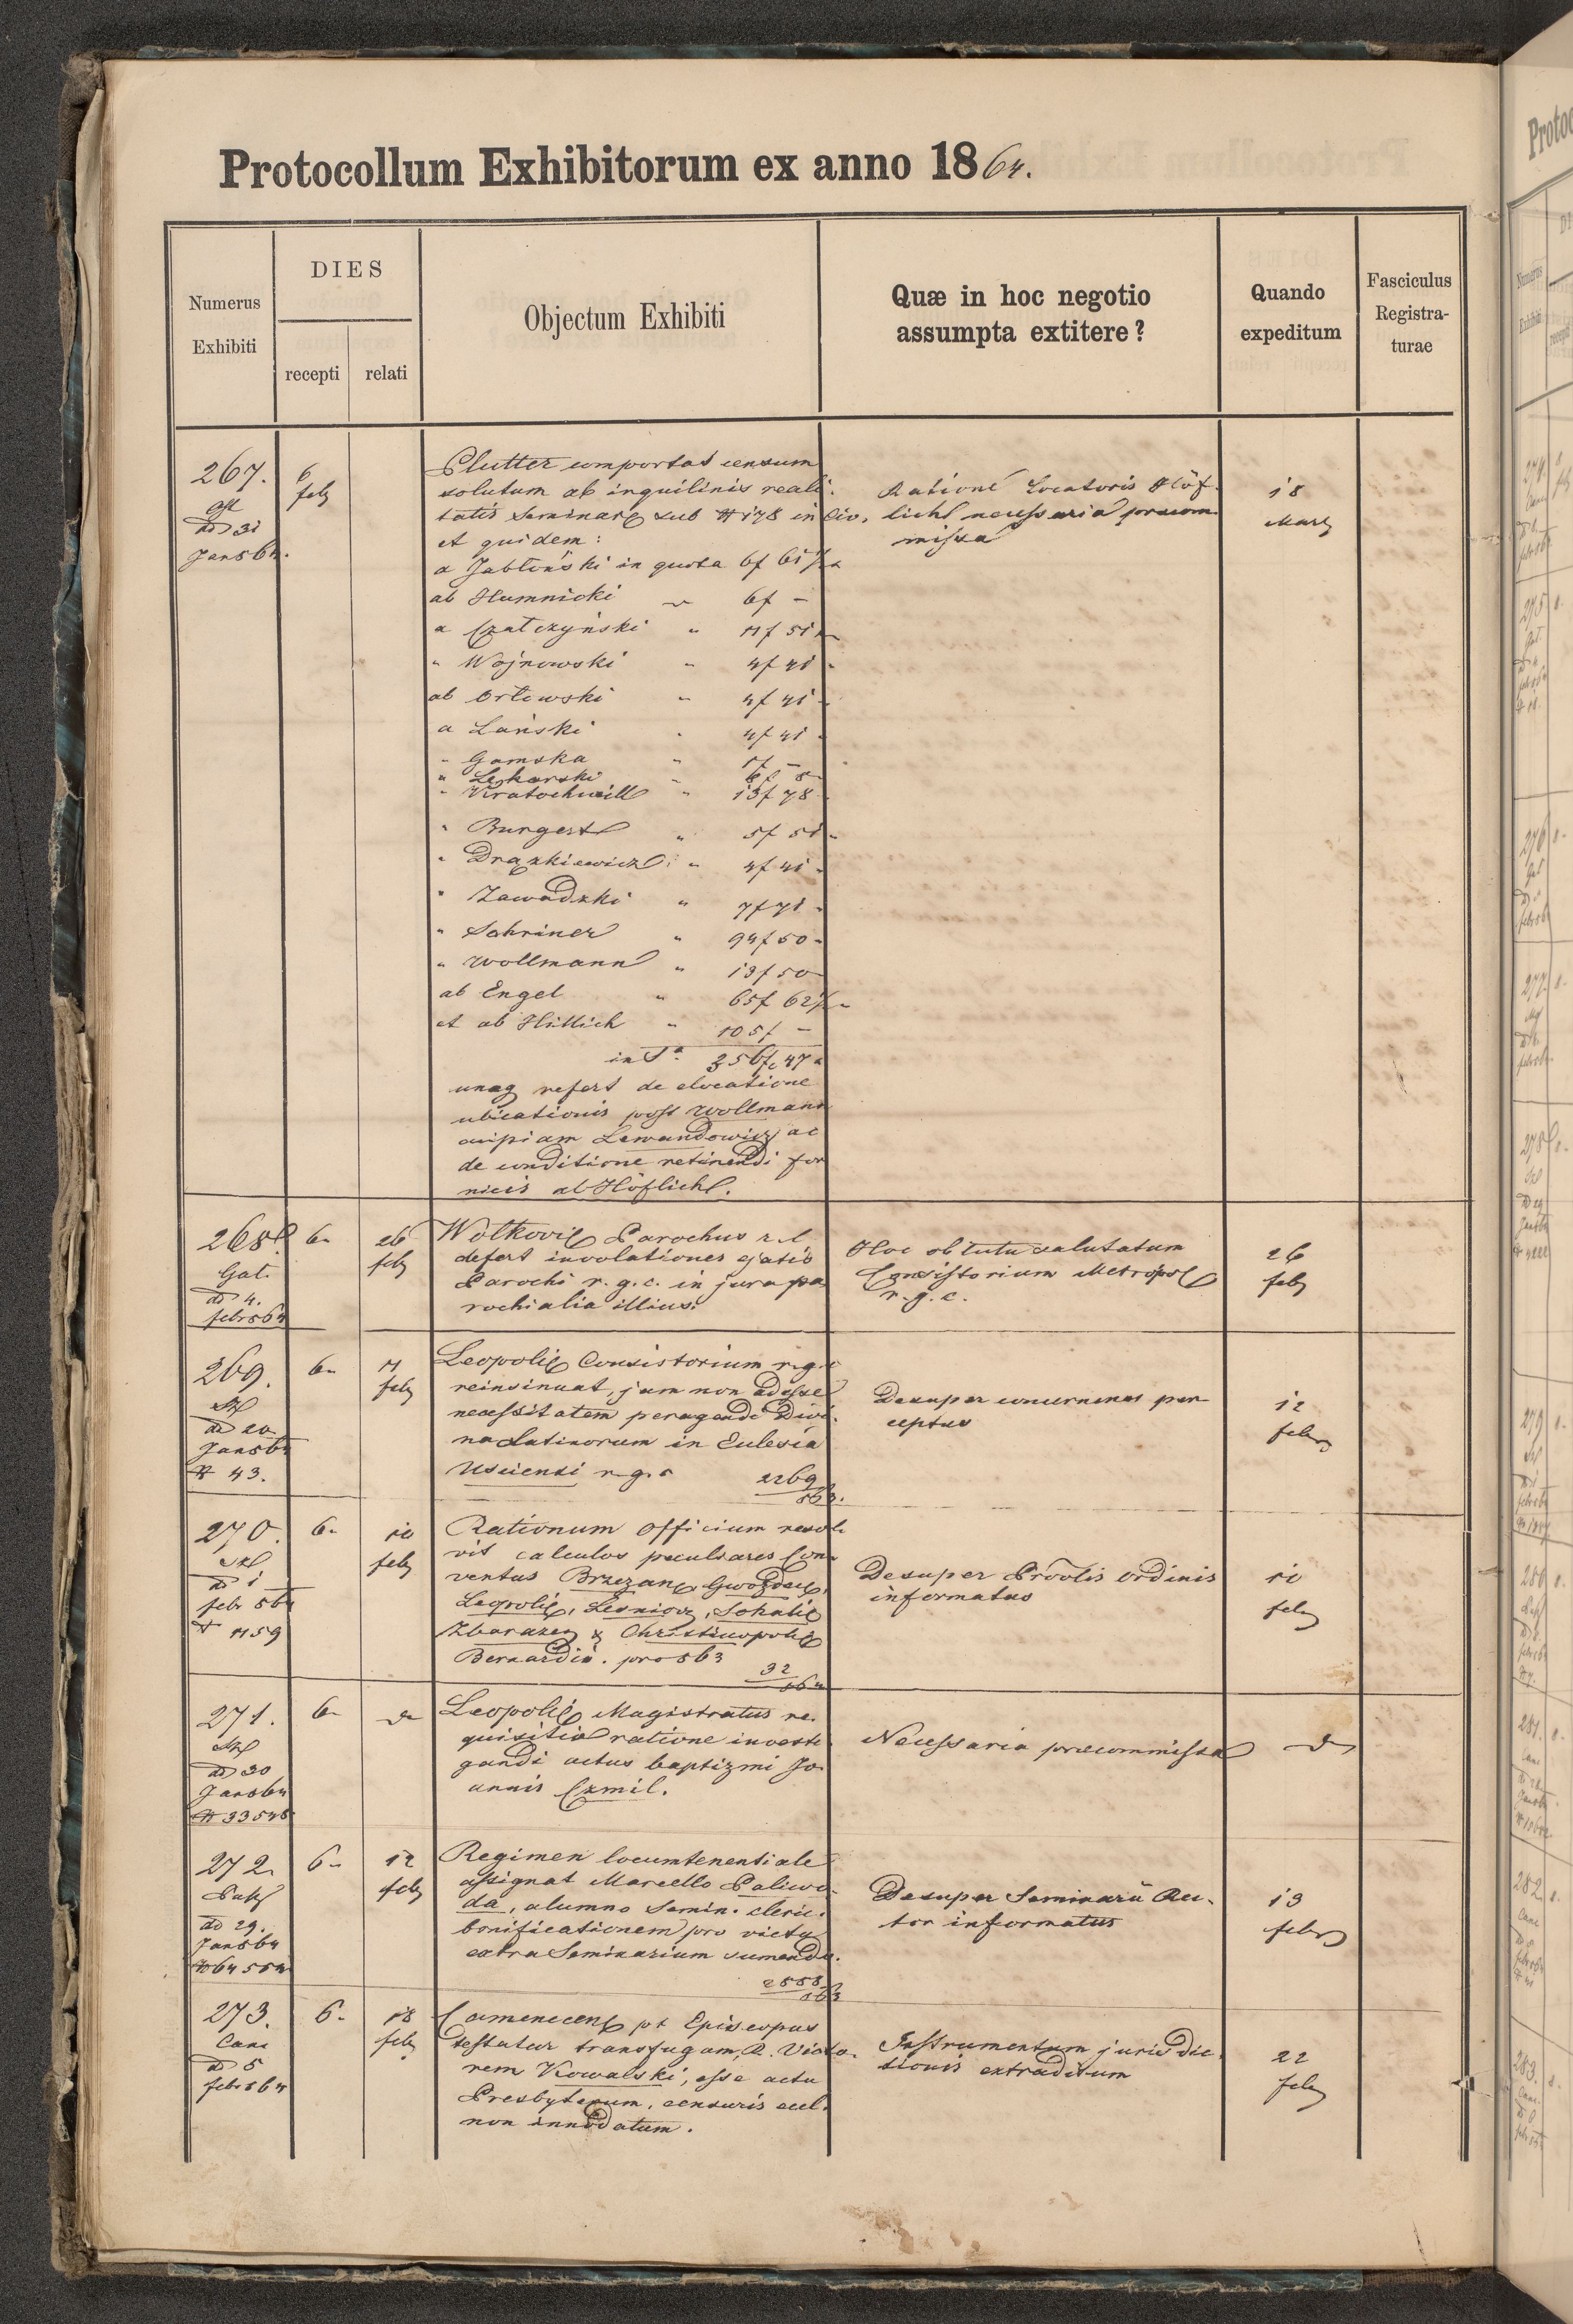 Protocollum Exhibitorum ex anno 1864.
Numerus
Exhibiti
DIES
recepti
relati
Objectum Exhibiti
Quæ in hoc negotio
assumpta extitere?
Quando
expeditum
Fasciculus
Registra-
turae
267.
dd 31
Jan 864.
6
feb
Plutter comportat censum
solutum ab inquilinis reali-
tatis Seminar sub # 178 in Civ.
et quidem:
a Jabłoński in quota 6f 61½
ab Humnicki 6f –
a Czałczyński " 11f 51
" Wojnowski " 4f 41
ab Orłowski " 4f 41
a Łański " 4f 41
" Gamska "
" Lekarski "
" Kratochwill " 13f 78
" Burgert " 5f 51
" Drazkiewicz " 4f 41
" Zawadzki " 7f 71
" Schriner " 94f 50
" Wollmann " 13f 50
ab Engel " 65f 62½
et ab Hüttich " 105f –
in Sa 356f 47
unaq refert de elocatione
ubicationis post Wollmann
cuipiam Lewandowicz ac
de conditione retinendi for
nicis ab Höflichl.
Ratione Locatoris Höf-
lichl necessaria præcom-
missa
18
Mart
268.
Gat.
dd 4.
febr 864
6.
26
feb
Wołkovie Parochus r.l.
defert involationes ejatis
Parochi r.g.c. in jura pa-
rochialia illius.
Hoc obtutu salutatum
Consistorium Metropol
r.g.c.
26
feb
269.
dd 20
Jan 864
# 43.
6.
11
feb
Leopolie Consistorium r.g.c
reinsinuat, jam non adesse
necessitatem peragendi Divi-
na Latinorum in Eclesia
Usciensi r.g.c 2269
863.
Desuper concernens per
ceptus
12
feb
270.
dd 1
febr 864
# 1159
6.
10
feb
Rationum Officium resol-
vit calculos peculiares Con-
ventus Brzezan, Gwozdec,
Leopolie, Lesniov, Sokalie
Zbarazen & Christinopolie
Bernardin. pro 863 32
864
Desuper Provlis Ordinis
informatus
10
feb
271.
dd 30
Jan 864
# 33548
6.
Leopolie Magistratus re-
quisitio ratione investi-
gandi actus baptizmi Jo-
annis Czmil.
Necessaria præcommissa
272.
dd 29.
Jan 864
6.
12
feb
Regimen locumtenentiale
assignat Marcello Paliwo-
da, alumno Semin. cleric.
bonificationem pro victu
extra Seminarium sumendo.
2558
863
Desuper Seminarii Rec-
tor informatus
13
feb
273.
Came
dd 5
febr 864
6.
18
feb
Camenecens pt Episcopus
testatur transfugam, R. Victo-
rem Kowalski, esse actu
Presbyterum, censuris eccl.
non innodatum.
Instrumentum jurisdic-
tionis extraditum
22
feb